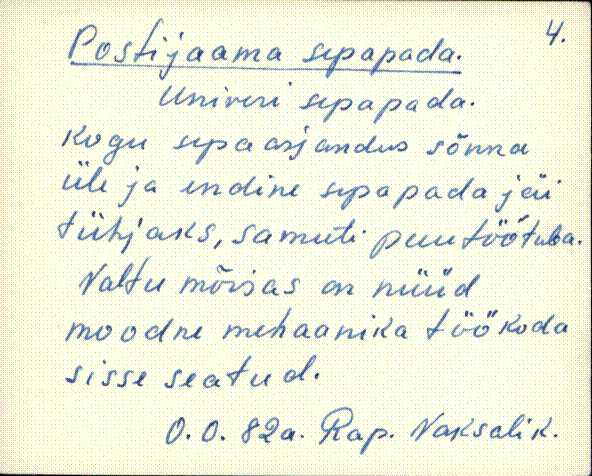 4.
Postijaama sepapada.
Univeri sepapada.
Kogu sepaasjandus sõnna
üle ja endine sepapada jäi
tühjaks, samuti puutöötuba.
Valtu mõisas on nüüd
moodne mehaanika töökoda
sisse seatud.
O. O. 82a. Rap. Naksalik.